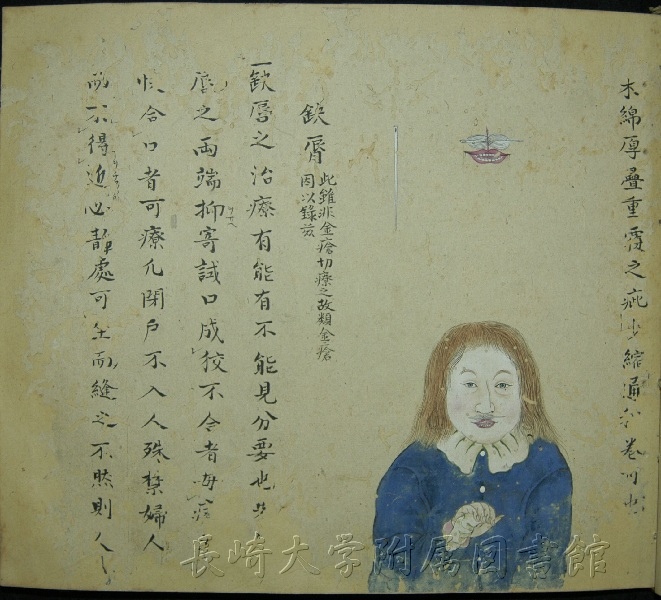 木綿厚疊重覆之疵少縮通和巻可也
欽唇
此雖非金瘡切療之故類金瘡
因以錄茲
一欽唇之治療有能有不能見分要也
唇之両端抑寄試口成狡不合者毋療
快合口者可療凡閉戸不入人殊禁婦人
不得近必静處可坐而縫之不然則人
長崎大学附属図書館